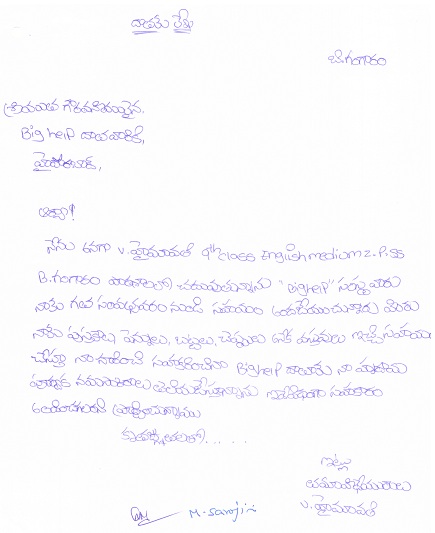 దాతకు లేఖ
బి.గంగారం
శ్రీయుత గౌరవనీయులైన,
Big help దాతవారికి,
హైదరాబాద్,
అయ్యా!
నేను అనగా v. హైమావతి 9th class English medium z.p.ss
B.గంగారం పాఠశాలలో చదువుచున్నాను "Bighelp" సంస్థ వారు
నాకు గత సంవత్సరం నుండి సహాయం అందజేయుచున్నారు వీరు
నాకు పుస్తకాలు, పెన్నులు, బట్టలు, చెప్పులు అనేక వస్తువులు ఇచ్చి సహాయం
చేస్తూ నా చదువుకి సహకరించిన Bighelp దాతలకు నా హృదయ
పూర్వక నమస్కారాలు తెలియజేస్తున్నాను ఇదేవిధంగా సహకారం
అందించాలని ప్రార్థిస్తున్నాను
కృతజ్ఞతలతో.....
ఇట్లు
తమ విధేయురాలు
v. హైమావతి
M. Saroji